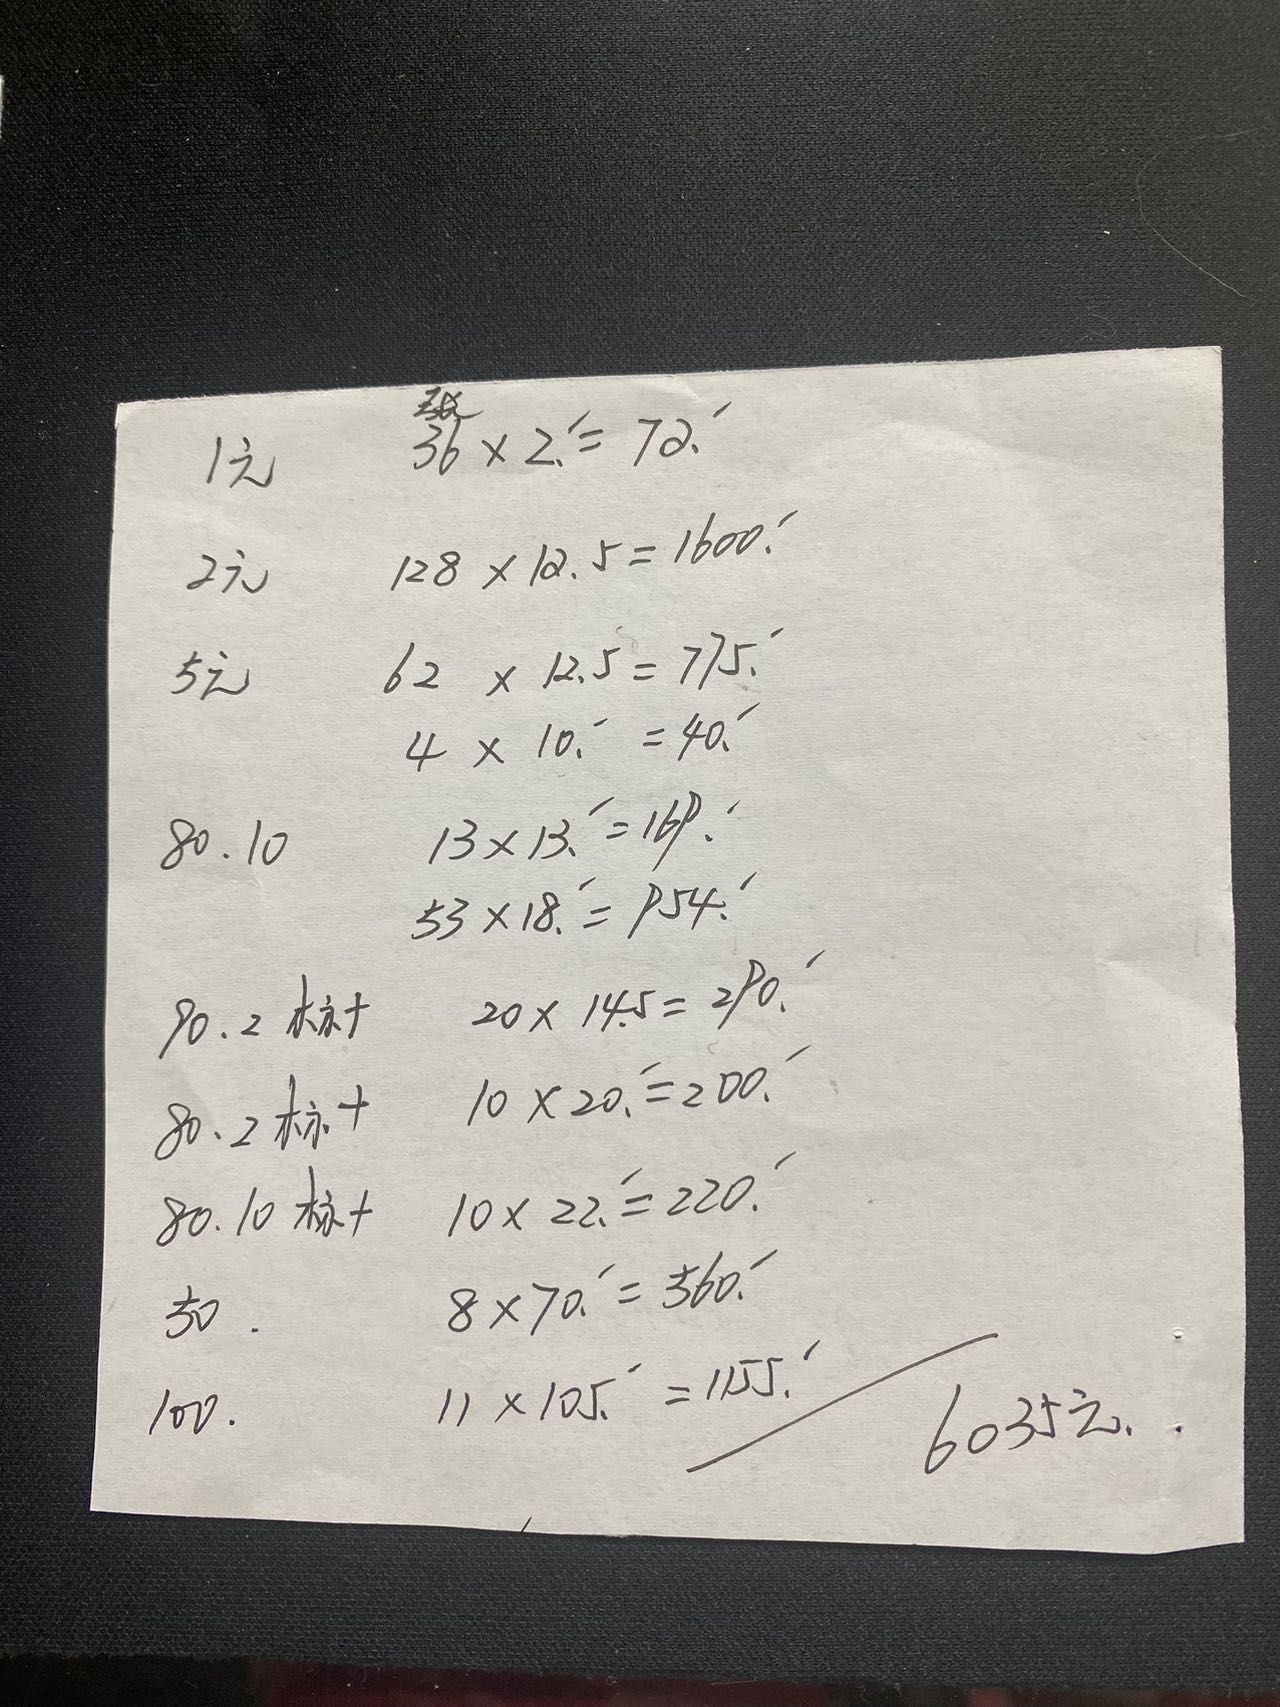 张
1元 36 × 2. = 72.
2元 128 × 12.5 = 1600.
5元 62 × 12.5 = 775.
4 × 10. = 40.
80.10 13 × 13. = 169.
53 × 18. = 954.
90.2 标十 20 × 14.5 = 290.
80.2 标十 10 × 20. = 200.
80.10 标十 10 × 22. = 220.
50. 8 × 70. = 560.
100. 11 × 105. = 1155.
6035元.